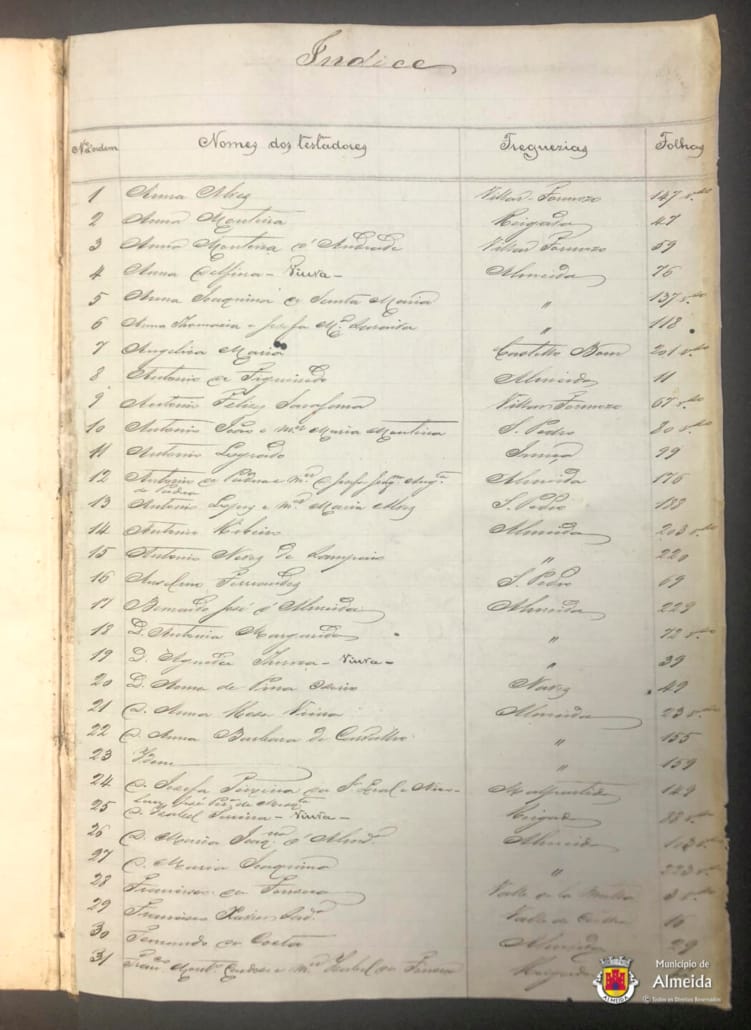 Indice
Nº d'ordem Nomes dos testadores Freguezias Folhas
1 Anna Alves Villar Formozo 147 v.
2 Anna Monteira Reigada 47
3 Anna Monteira d'Andrade Villar Formozo 59
4 Anna Delfina - Viuva - Almeida 76
5 Anna Joaquina de Santa Maria " 137 v.
6 Anna Thomazia e Josefa Mª " 118
7 Angelica Maria Castello Bom 201 v.
8 Antonio de Figueiredo Almeida 11
9 Antonio Felix Villar Formozo 67 v.
10 Antonio João e mer Maria Monteira S. Pedro 80 v.
11 Antonio 99
12 Antonio de e mer Josefa Almeida 176
13 Antonio Lopes e mer Maria Alves S. Pedro 188
14 Antonio Ribeiro Almeida 203 v.
15 Antonio Neves de Sampaio " 220
16 Anselmo Fernandes S. Pedro 69
17 Bernardo José d'Almeida Almeida 228
18 D. Antonia Margarida " 72 v.
19 D. Agueda Thereza - Viuva - " 39
20 D. Anna de Pina Osorio Naves 49
21 D. Anna Roza Vieira Almeida 23 v.
22 D. Anna Barbara de Carvalho " 155
23 Idem " 159
24 D. Josefa Malpartida 149
25 D. Izabel - Viuva - Reigada 88 v.
26 D. Maria Almeida
27 D. Maria Joaquina " 223 v.
28 Francisco da Fonseca Valle de la Mulla 3 v.
29 Francisco Xavier Valle de Coelha 16
30 Fernando da Costa Almeida 29
31 e mer Izabel da Reigada
Município de
Almeida
© Todos os Direitos Reservados
ALMEIDA